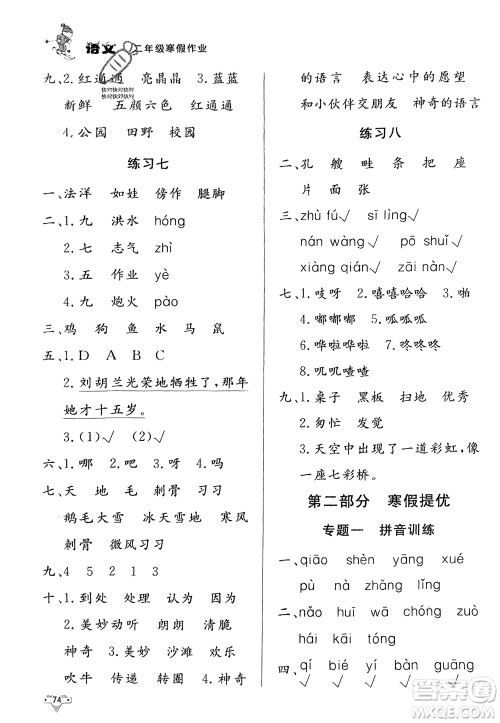 语文 二年级寒假作业
九、2. 红通通 亮晶晶 3. 蓝蓝
新鲜 五颜六色 红通通
4. 公园 田野 校园
练习七
一、法洋 如娃 傍作 腿脚
二、1. 九 洪水 hóng
2. 七 志气 zhì
3. 五 作业 yè
4. 九 炮火 pào
三、鸡 狗 鱼 马 鼠
五、1. D A B C
2. 刘胡兰光荣地牺牲了,那年
她才十五岁。
3. (1)√ (2)√
六、1. 哪 2. 吧 3. 呀 4. 吗
七、天 地 毛 刺骨 刺骨
鹅毛大雪 冰天雪地 寒风
刺骨 微风习习
九、4 5 2 1 3
十、1. 到处 处理 认为 为了
2. 美妙动听 朗朗 清脆
神奇 3. 沙滩 美妙 欢乐
吹牛 传递 神奇 4. 诵读
74
的语言 表达心中的愿望
和小伙伴交朋友 神奇的语言
练习八
二、孔 艘 畦 条 把 座
片 面 张
三、zhù fú√ sī lìng√
nán wàng√ pò suǐ√
xiàng qián√ zāi nàn√
七、1. 吱呀 2. 嘻嘻哈哈 3. 啪
4. 嘟嘟嘟 5. 呱呱呱
6. 哗啦哗啦 7. 咚咚咚
8. 叽叽喳喳
九、1. 桌子 黑板 扫地 优秀
2. 匆忙 发觉
3. 天空中出现了一道彩虹,像
一座七彩桥。
第二部分 寒假提优
专题一 拼音训练
一、qiāo shèn yāng xué
pù nà zhǎng lǐng
二、1. nǎo hú wā chóng zhú
2. hái fú wài cóng zú
四、√ √ √ √ √ √